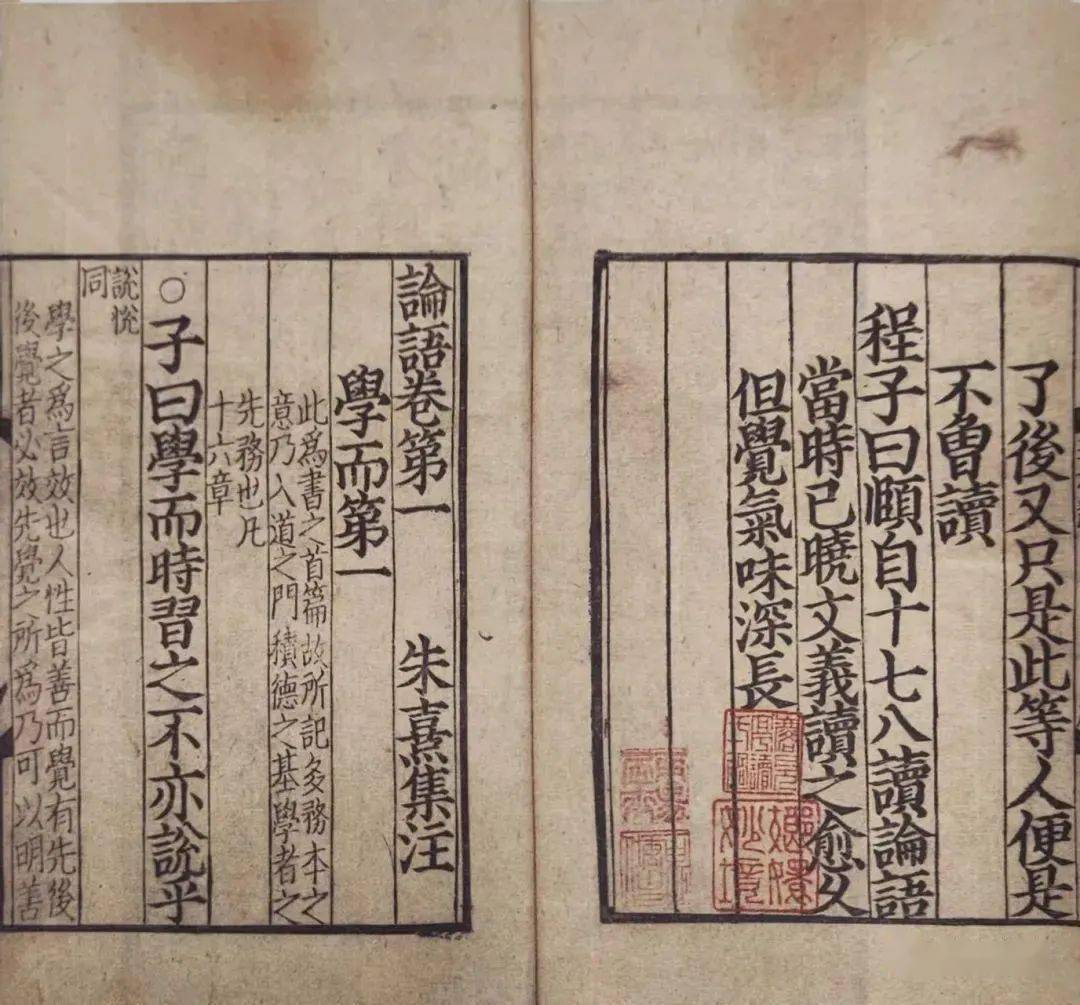 了後又只是此等人便是
不曾讀
程子曰頤自十七八讀論語
當時已曉文義讀之愈久
但覺氣味深長
嫏嬛妙境
論語卷第一 朱熹集注
學而第一
此爲書之首篇故所記多務本之
意乃入道之門積德之基學者之
先務也凡
十六章
○子曰學而時習之不亦說乎
說悅
同
學之爲言效也人性皆善而覺有先後
後覺者必效先覺之所爲乃可以明善